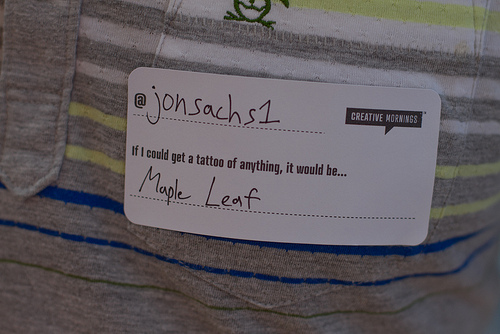 @johsachs1
CREATIVE MORNINGS
If I could get a tattoo of anything, it would be...
Maple Leaf